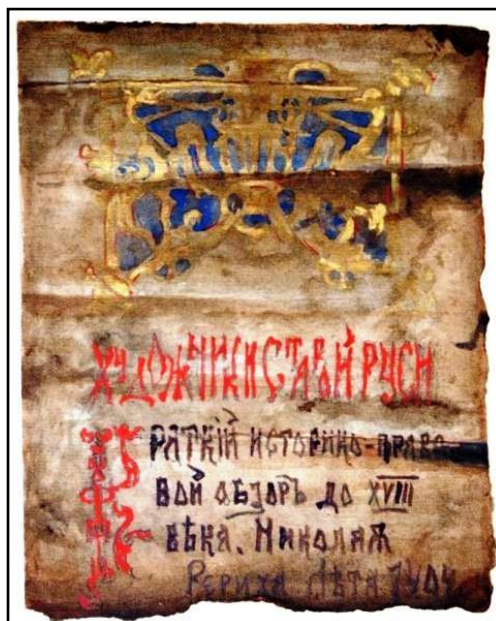 ХУДОЖНИКИ СТАРОЙ РУСИ
КРАТКІЙ ИСТОРИКО-ПРАВО
ВОЙ ОБЗОРЪ ДО XVIII
ВѢКА. НИКОЛАЯ
РЕРИХА ЛѢТА 7404